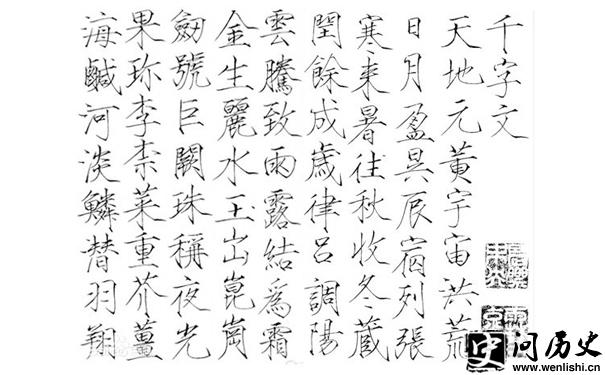 千字文
天地元黃宇宙洪荒
日月盈昃辰宿列張
寒来暑往秋收冬蔵
閏餘成歲律呂調陽
雲騰致雨露結爲霜
金生麗水玉出崑崗
劒號巨闕珠稱夜光
果珎李柰菜重芥薑
海鹹河淡鱗潜羽翔
史 问历史
www.wenlishi.cn